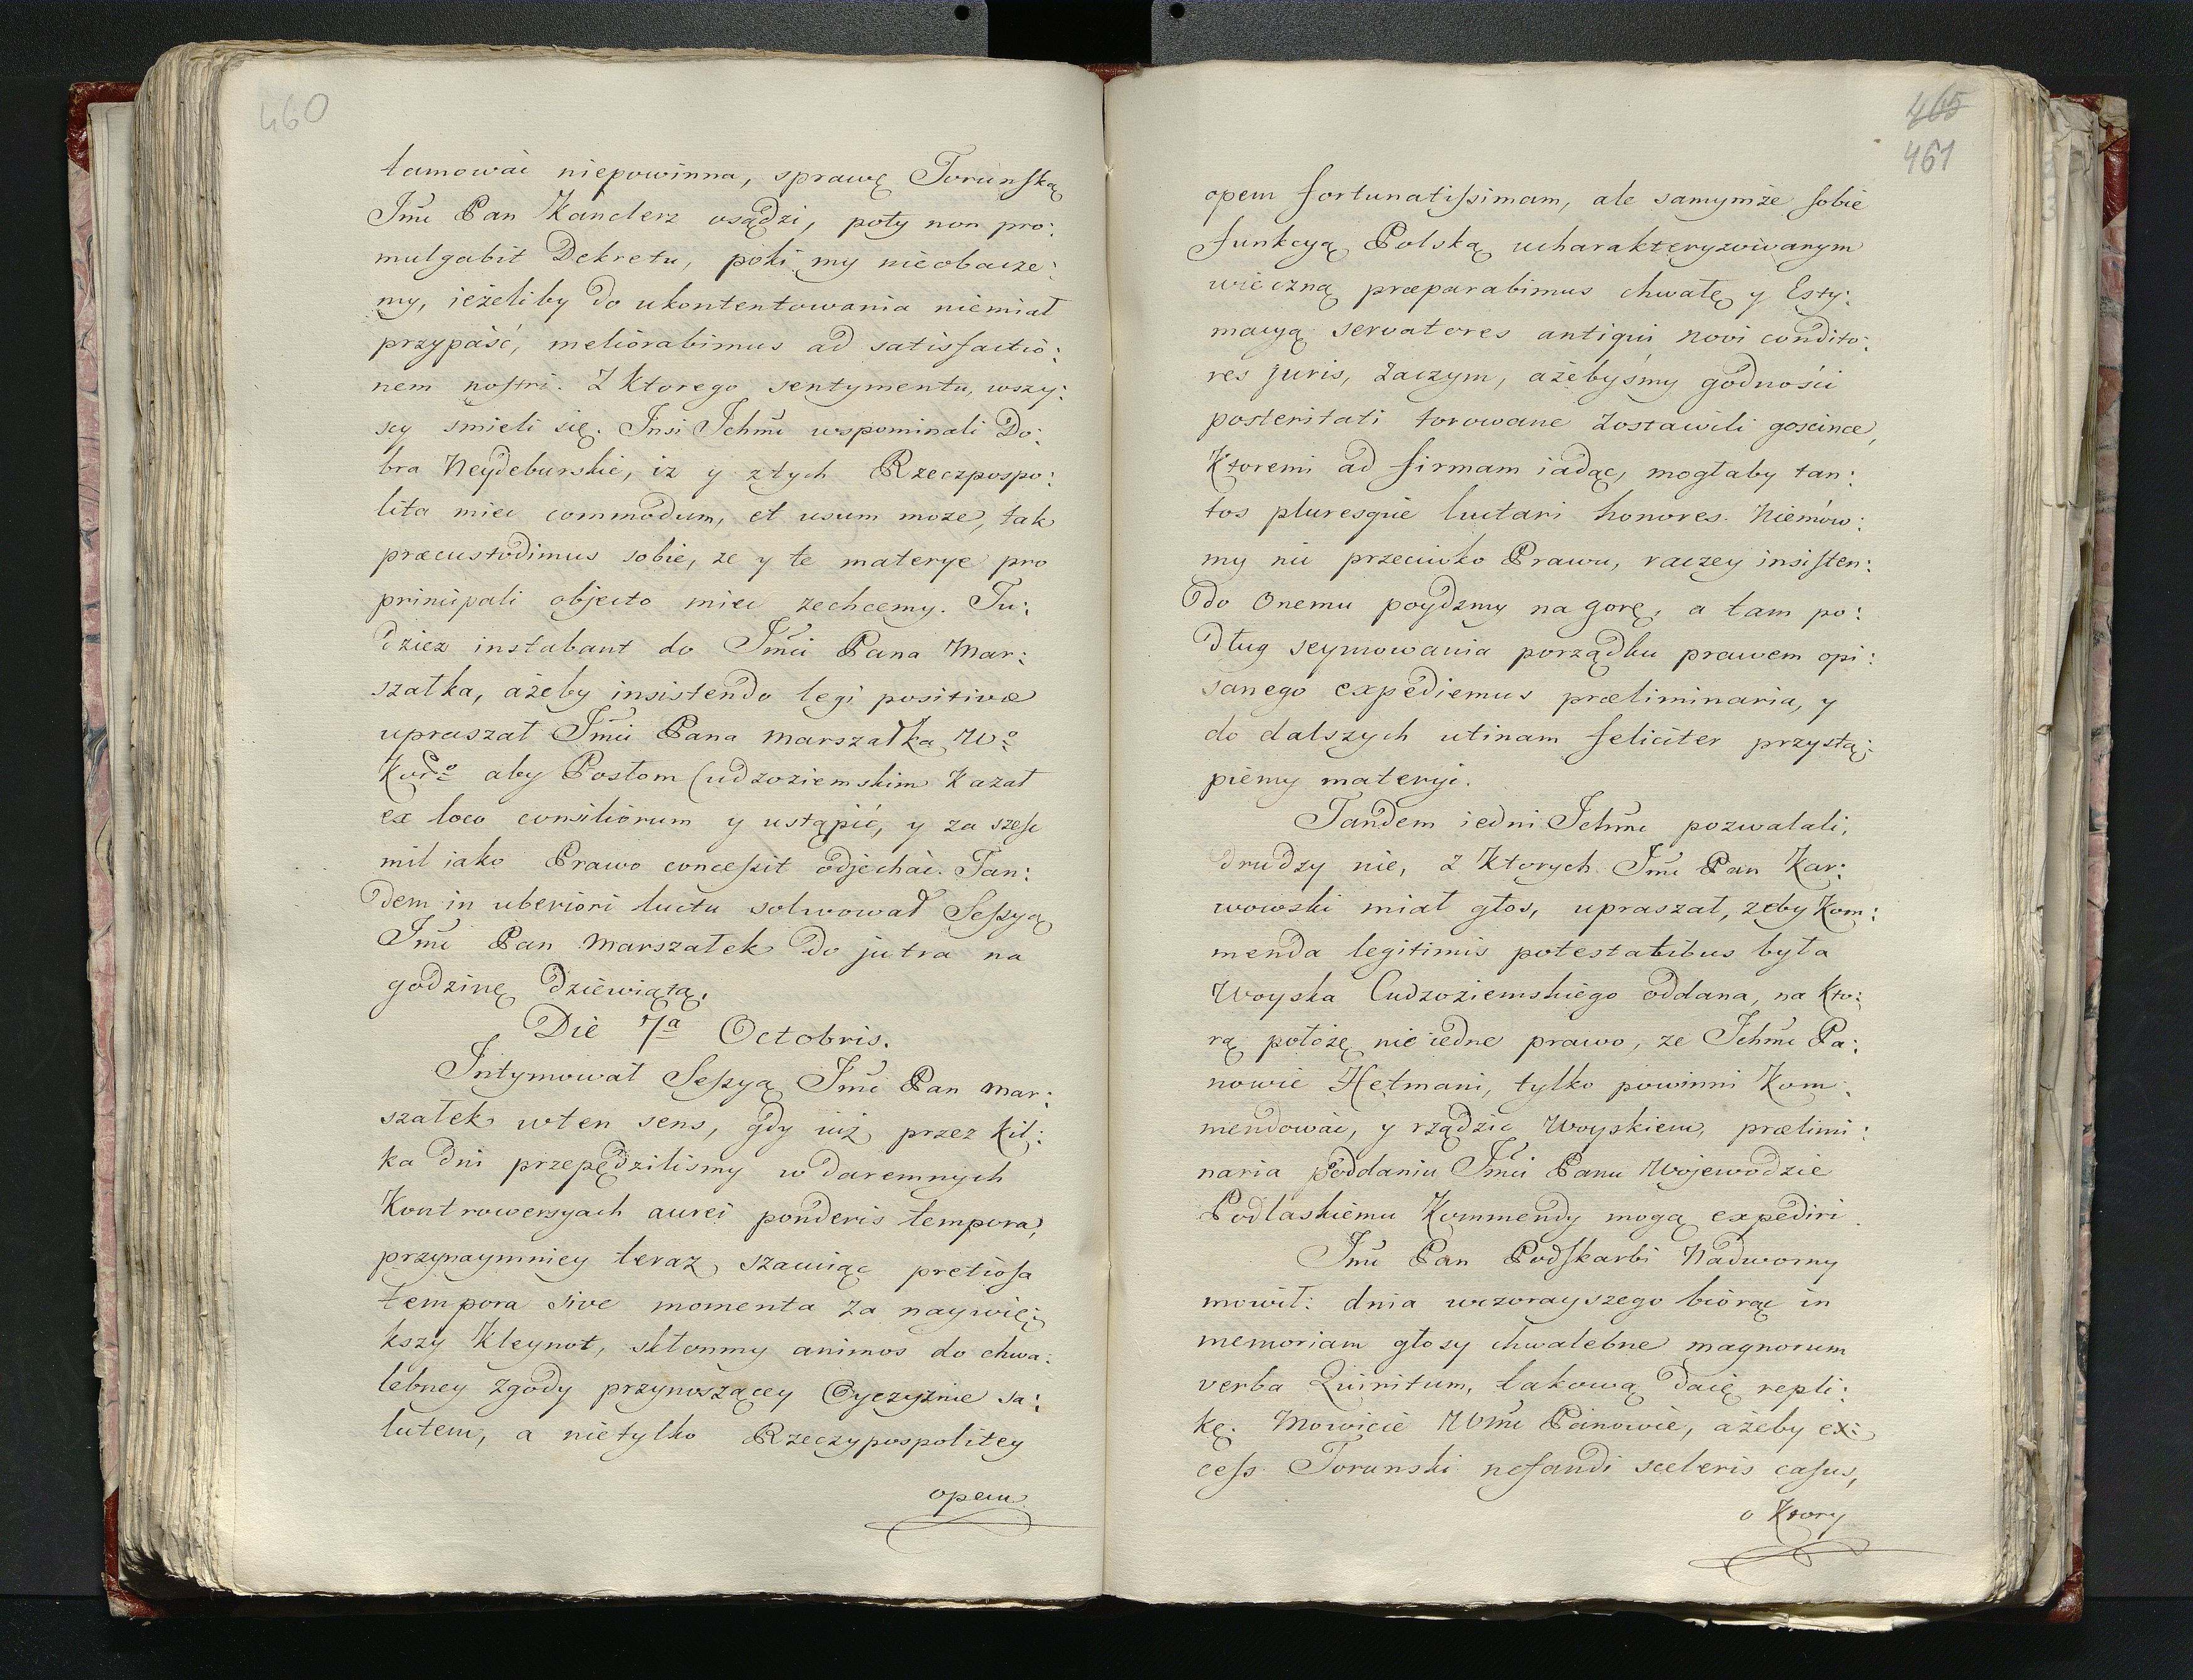 460
tamowai niepowinna, sprawę Torunską
Jmć Pan Kanclerz osądzi, poty non pro:
mulgabit Dekretu, poki my nieobacze:
my, ieżeliby do ukontentowania niemiał
przypaść, meliorabimus ad satisfactio:
nem nostri. Z ktorego sentymentu, wszy:
scy smieli się. Insi Ichmć wspominali Do:
bra Neydeburskie, iz y z tych Rzeczpospo:
lita miec commodum, et usum moze, tak
præcustodimus sobie, ze y te materye pro
principali objecto miec zechcemy. Tu:
dziez instabant do Jmci Pana Mar:
szałka, ażeby insistendo legi positivæ
upraszał Jmci Pana Marszałka Wo
Kor̃o aby Posłom Cudzoziemskim Kazał
ex loco consiliorum y ustąpić, y za szesc
mil iako Prawo concessit odjechać. Tan:
dem in uberiori luctu solwował Sessyą
Jmć Pan Marszałek do jutra na
godzinę dziewiątą.
Die 7a Octobris.
Intymował Sessyą Jmć Pan Mar:
szałek w ten sens, gdy iuż przez kil:
ka dni przepędzilismy w daremnych
Kontrowersyach aurei ponderis tempora,
przynaymniey teraz szacuiąc pretiosa
tempora sive momenta za naywię:
kszy Kleynot, skłonmy animos do chwa:
lebney zgody przynoszącey Oyczyznie sa:
lutem, a nietylko Rzeczypospolitey
opem
465
461
opem fortunatissimam, ale samymże sobie
funkcyą Polską ucharakteryzowanym
wieczną præparabimus chwałę y Esty:
macyą servatores antiqui novi condito:
res juris, Zaczym, ażebyśmy godności
posteritati torowane zostawili goscince,
Ktoremi ad firmam iadąc, mogłaby tan:
tos pluresque luctari honores. Niemow:
my nic przeciwko Prawu, raczey insisten:
do Onemu poydzmy na gorę, a tam po:
dług seymowania porządku prawem opi:
sanego expediemus præliminaria, y
do dalszych utinam feliciter przystą:
piemy materyi.
Tandem iedni Ichmć pozwalali,
drudzy nie, z ktorych Jmć Pan Kar:
wowski miał głos, upraszał, zeby Kom:
menda legitimis potestatibus była
Woyska Cudzoziemskiego oddana, na kto:
rą położę nie iedne prawo, ze Ichmć Pa:
nowie Hetmani, tylko powinni Kom:
mendowai, y rządzic Woyskiem, prælimi:
naria poddaniu Jmci Panu Wojewodzie
Podlaskiemu Kommendy mogą expediri.
Jmć Pan Podskarbi Nadworny
mowił: dnia wczorayszego biorąc in
memoriam głosy chwalebne magnorum
verba Quiritum, takową daię repli:
kę. Mowicie WMć Panowie, ażeby ex:
cess Torunski nefandi sceleris casus,
o Ktory